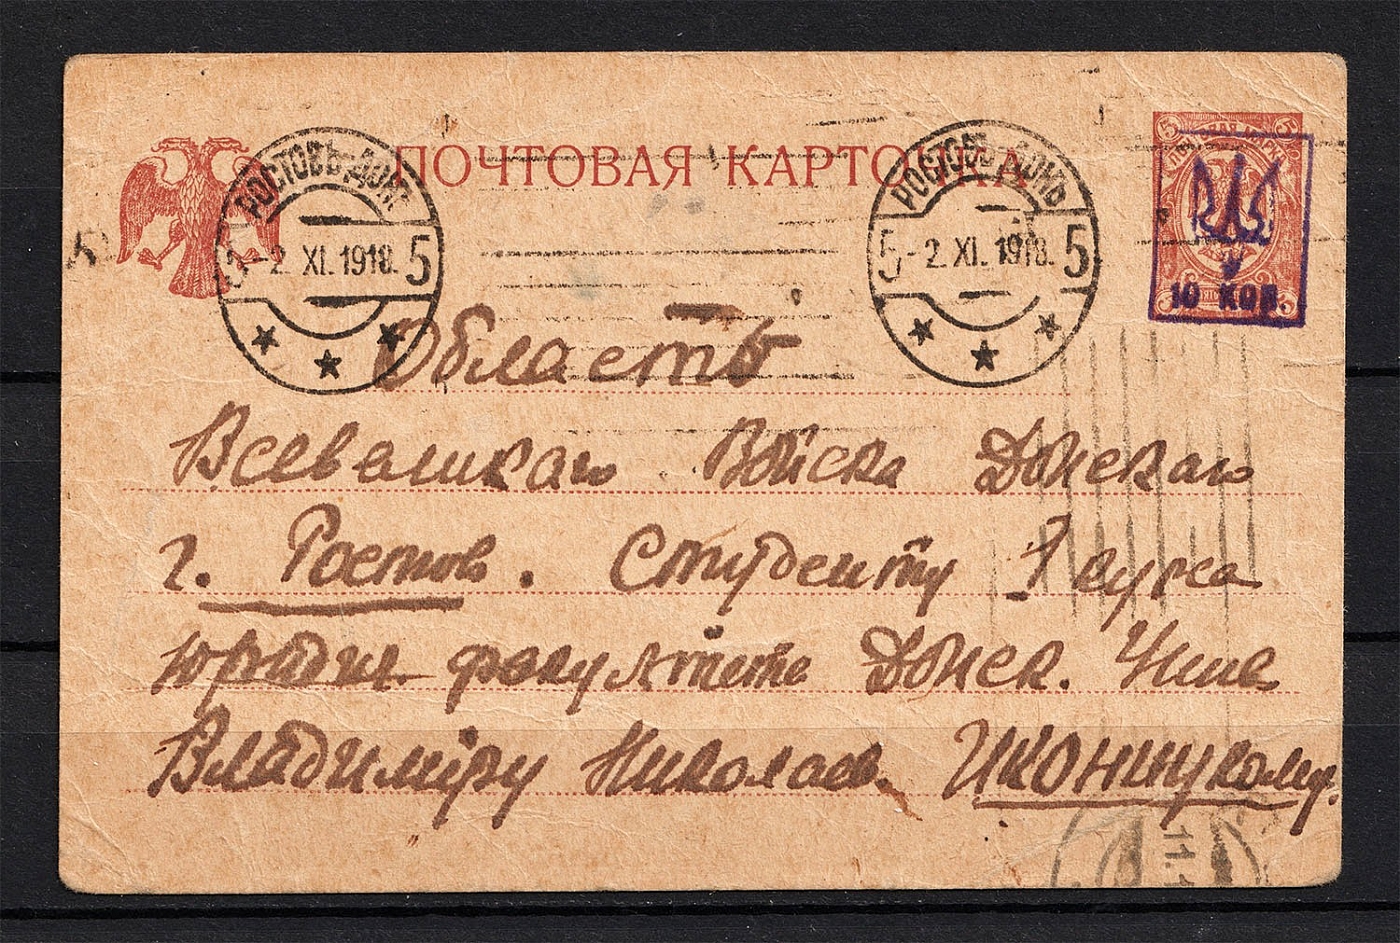 ПОЧТОВАЯ КАРТОЧКА
РОСТОВЪ-ДОНЪ
5 -2. XI. 1918. 5
РОСТОВЪ-ДОНЪ
5 -2. XI. 1918. 5
5 5
10 КОП.
Область
Всевеликаго Войска Донскаго
г. Ростов. Студенту 1 курса
юридич. факультета Донск. Унив
Владимiру Николаев.
11.